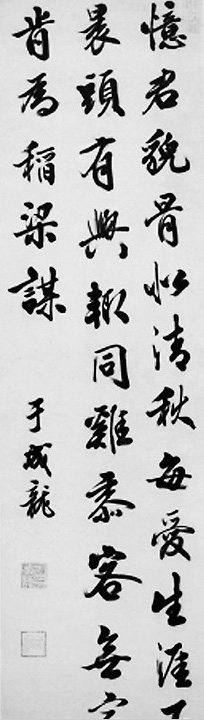 憶君貌骨似清秋每愛生涯
晨頭有興輒同雞黍客無
肯為稻粱謀
于成龍